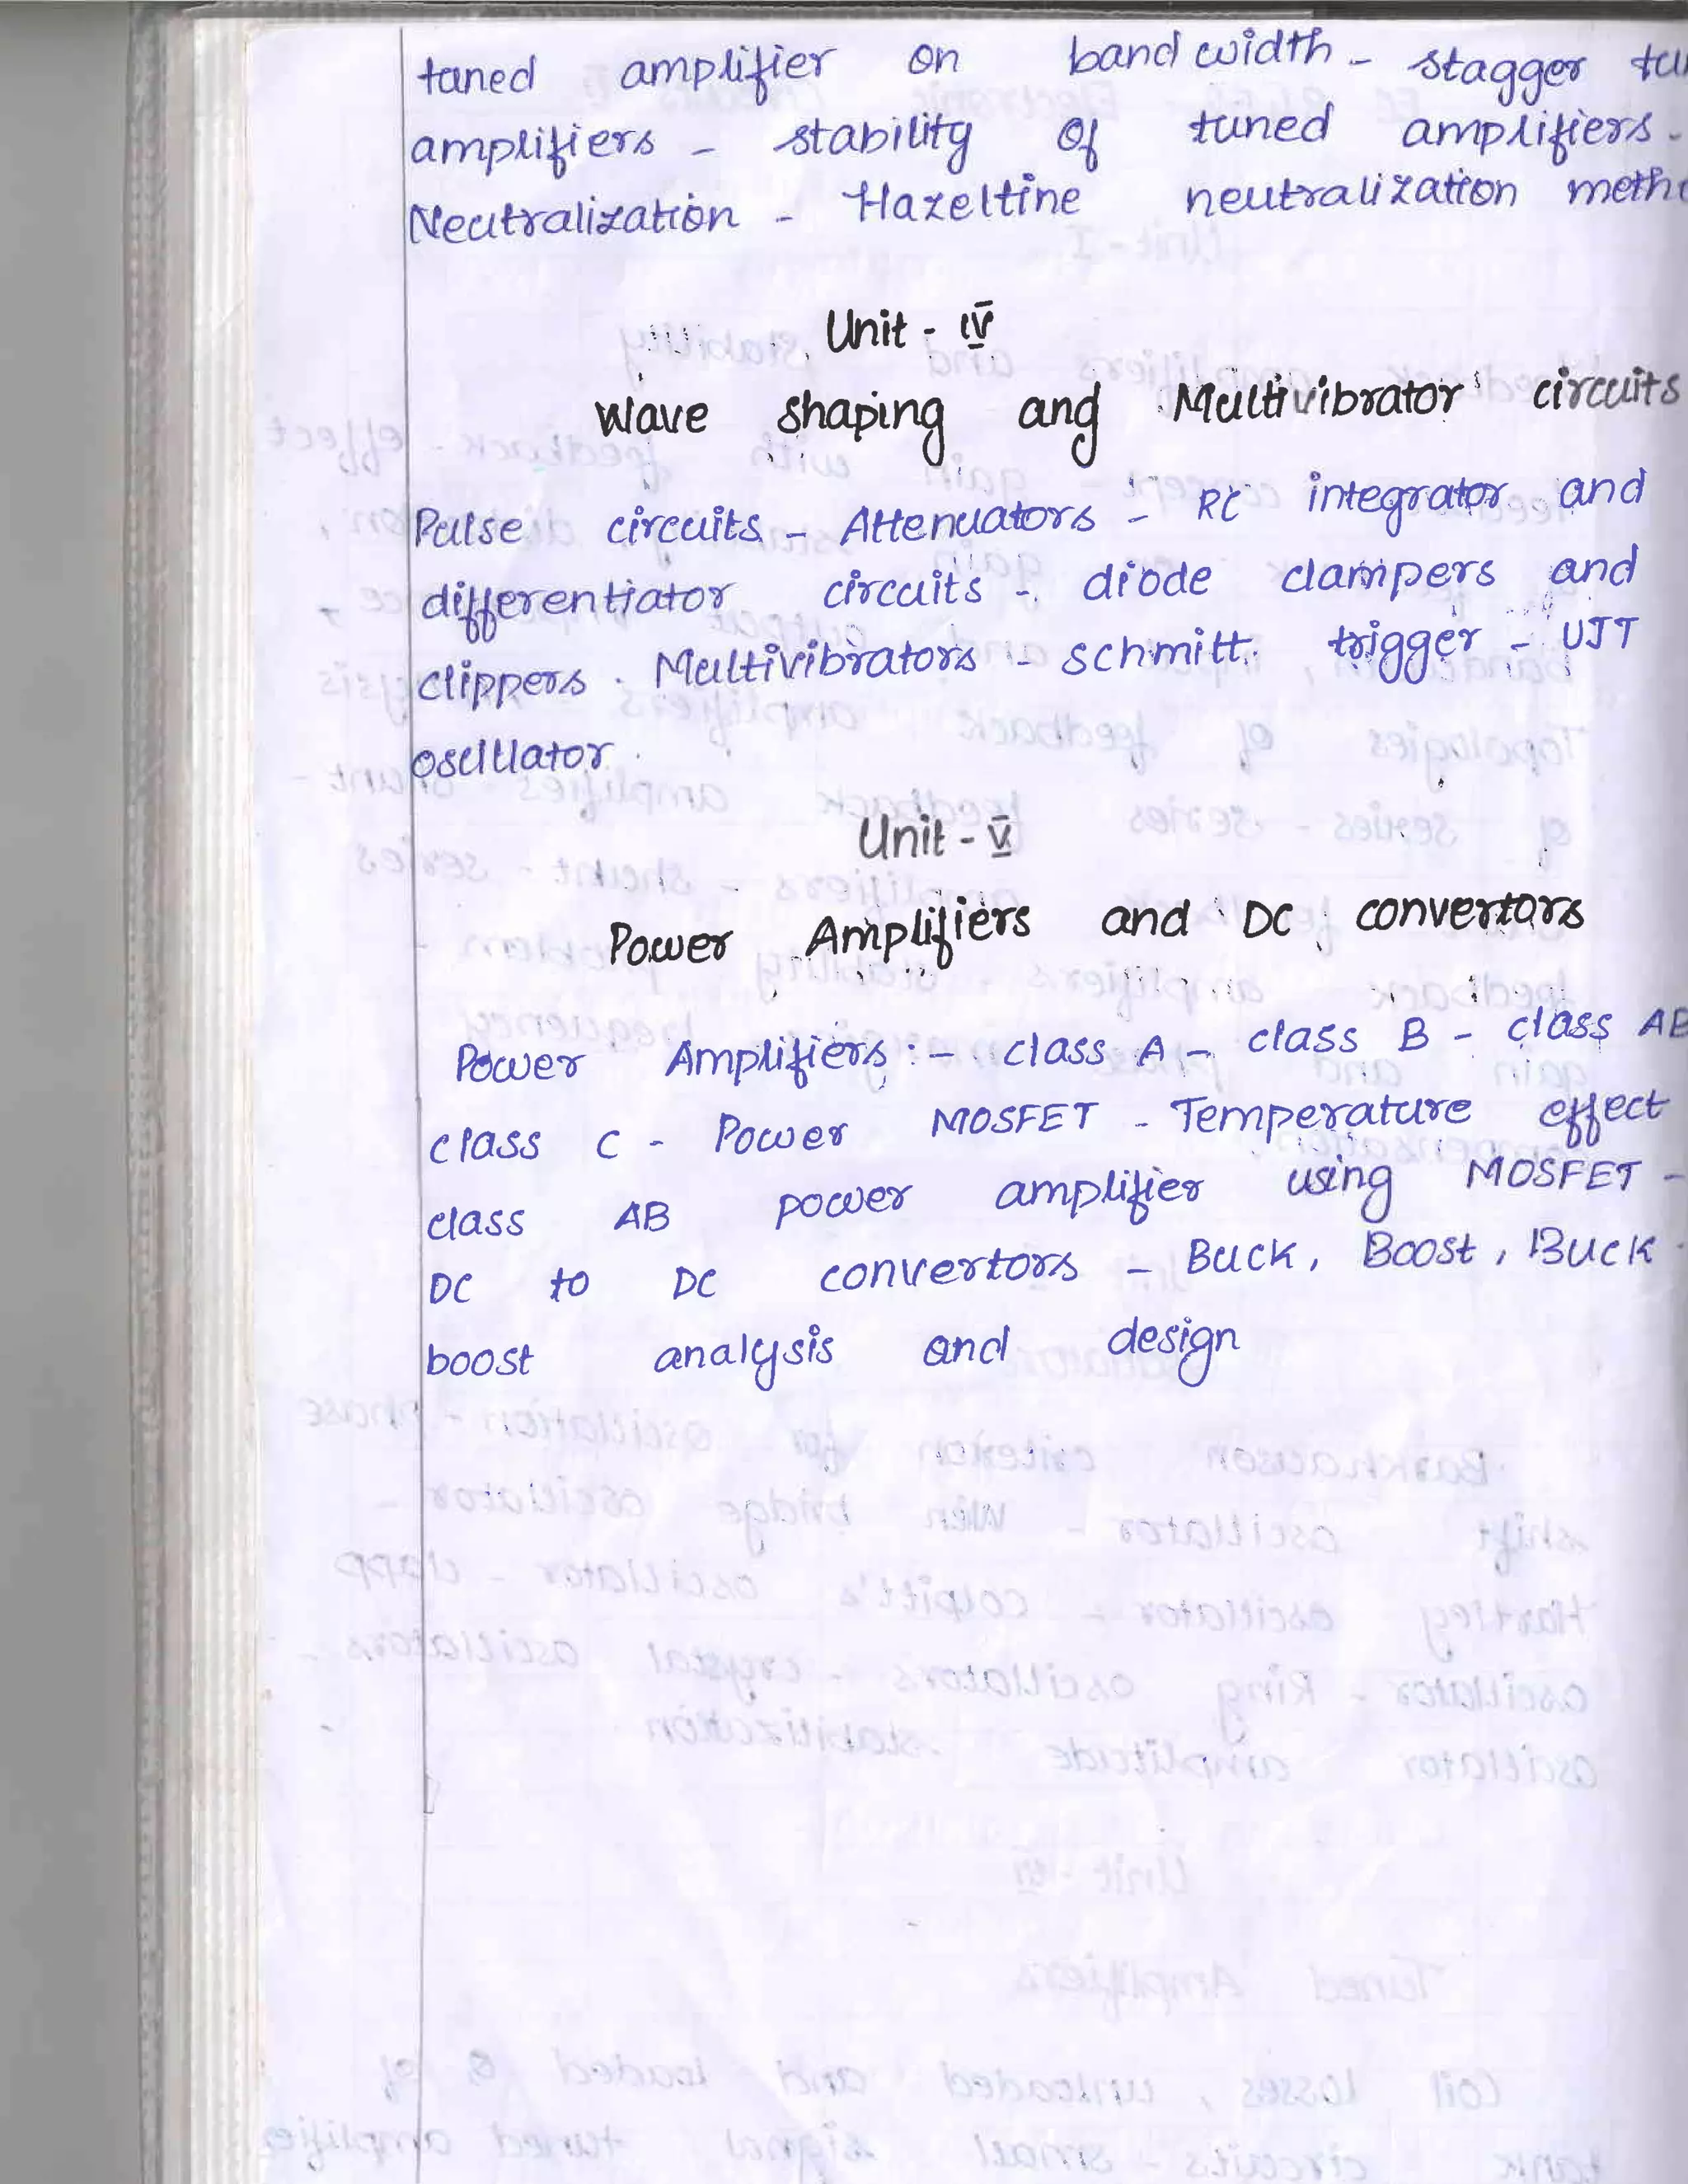 tuned amplifier on band width - stagger
amplifiers - stability of tuned amplifiers -
Neutralization - Hazeltine neutralization
Unit - IV
Wave shaping and Multivibrator circuits
Pulse circuits - Attenuators - RC integrator and
differentiator circuits - diode clampers and
clippers. Multivibrators - schmitt trigger - UJT
oscillator.
Unit - V
Power Amplifiers and DC convertors
Power Amplifiers :- class A - class B - class AB
class C - Power MOSFET - Temperature effect
class AB power amplifier using MOSFET -
DC to DC convertors - Buck, Boost, Buck -
boost analysis and design